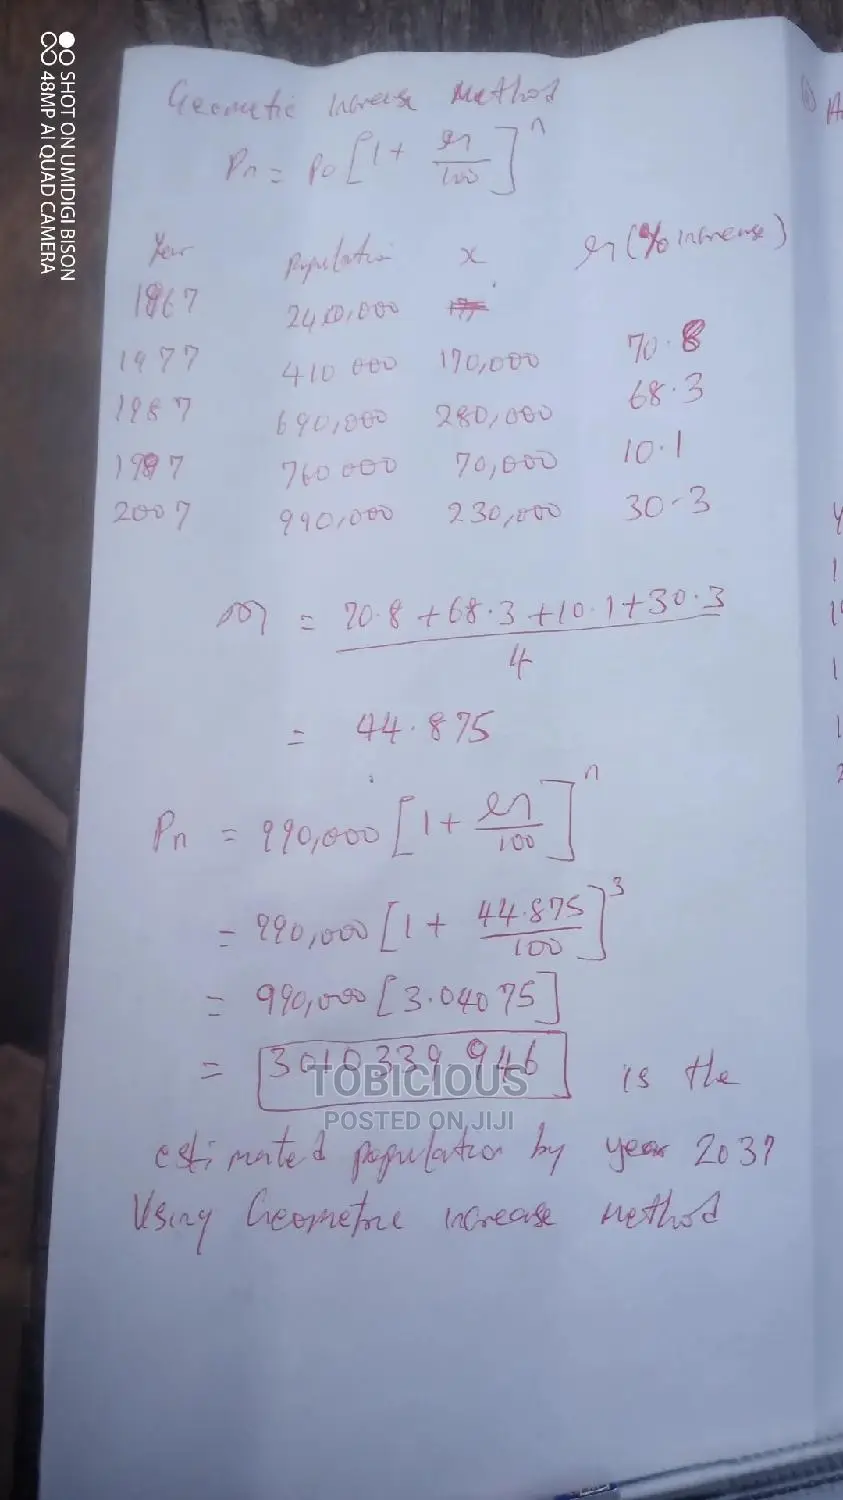 SHOT ON UMIDIGI BISON
48MP AI QUAD CAMERA
Geometric Increase Method
Pn = Po [1 + r/100]^n
Year Population x r (% increase)
1967 240,000
1977 410 000 170,000 70.8
1987 690,000 280,000 68.3
1997 760 000 70,000 10.1
2007 990,000 230,000 30.3
r = 70.8 + 68.3 + 10.1 + 30.3
4
= 44.875
Pn = 990,000 [1 + r/100]^n
= 990,000 [1 + 44.875/100]^3
= 990,000 [3.04075]
= 3010339.946 is the
TOBICIOUS
POSTED ON JIJI
estimated population by year 2037
Using Geometric increase method